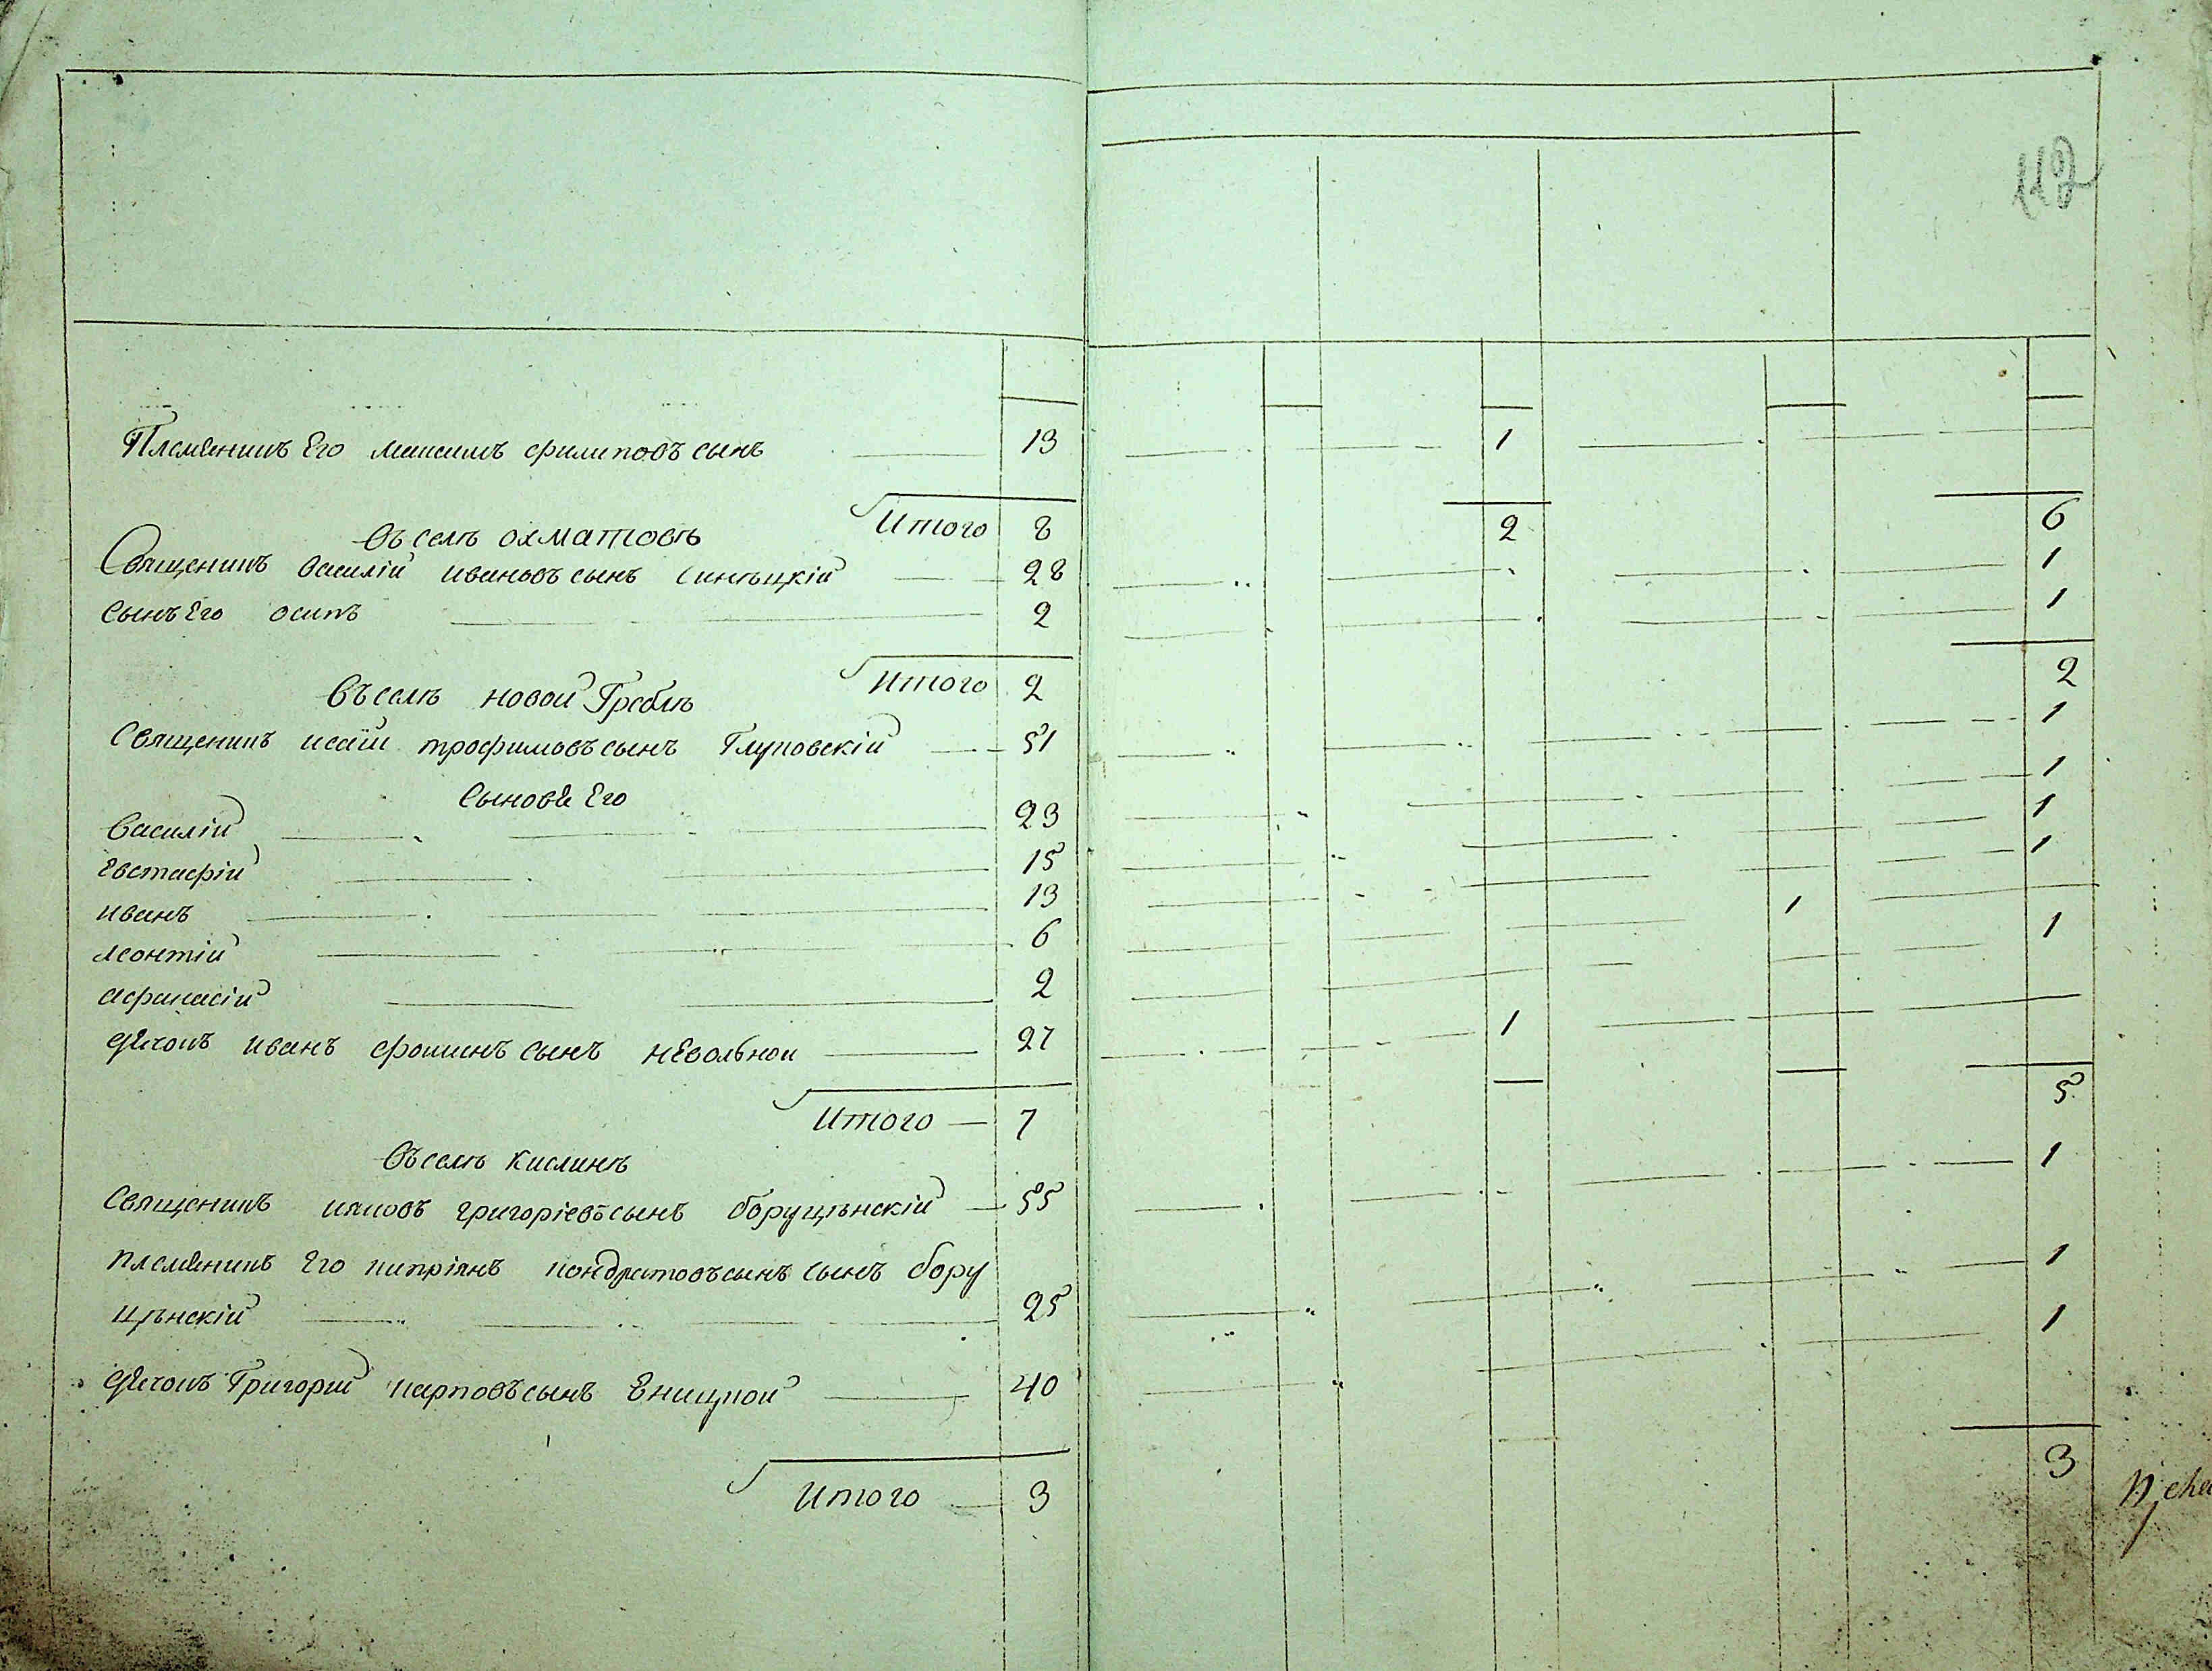 112
Племянникъ Его максимъ филиповъ сынъ 13 1
Итого 8 2 6
Въ селѣ охматовѣ
Священикъ василій ивановъ сынъ Синѣцкій 28 1
Сынъ Его осипъ 2 1
Итого 2 2
Въ селѣ новой Греблѣ
Священикъ исаій трофимовъ сынъ Глуховскій 51 1
Сыновя Его
василій 23 1
Евстафій 15 1
иванъ 13 1
леонтій 6 1
афанасій 2 1
дячокъ иванъ фоминъ сынъ невольной 27 1
Итого 7 5
Въ селѣ кислинѣ
Священикъ иаковъ григоріевъ сынъ боруцѣнскій 55 1
племяникъ Его киприянъ кондратовъ сынъ сынъ бору
цѣнскій 25 1
дячокъ Григорій карповъ сынъ 40 1
Итого 3 3